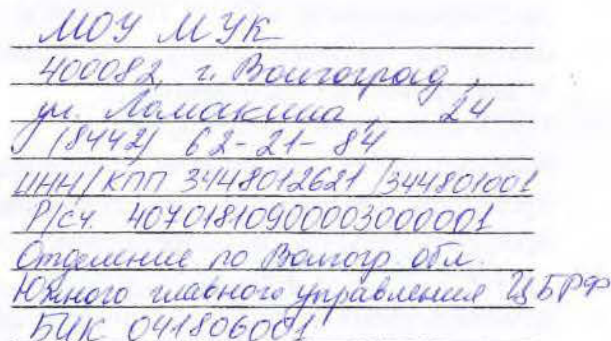 МОУ МУК
400082, г. Волгоград,
ул. Ломакина, 24
(8442) 62-21-84
ИНН/КПП 3448012621/344801001
Р/сч. 40701810900003000001
Отделение по Волгогр. обл.
Южного главного управления ЦБРФ
БИК 041806001